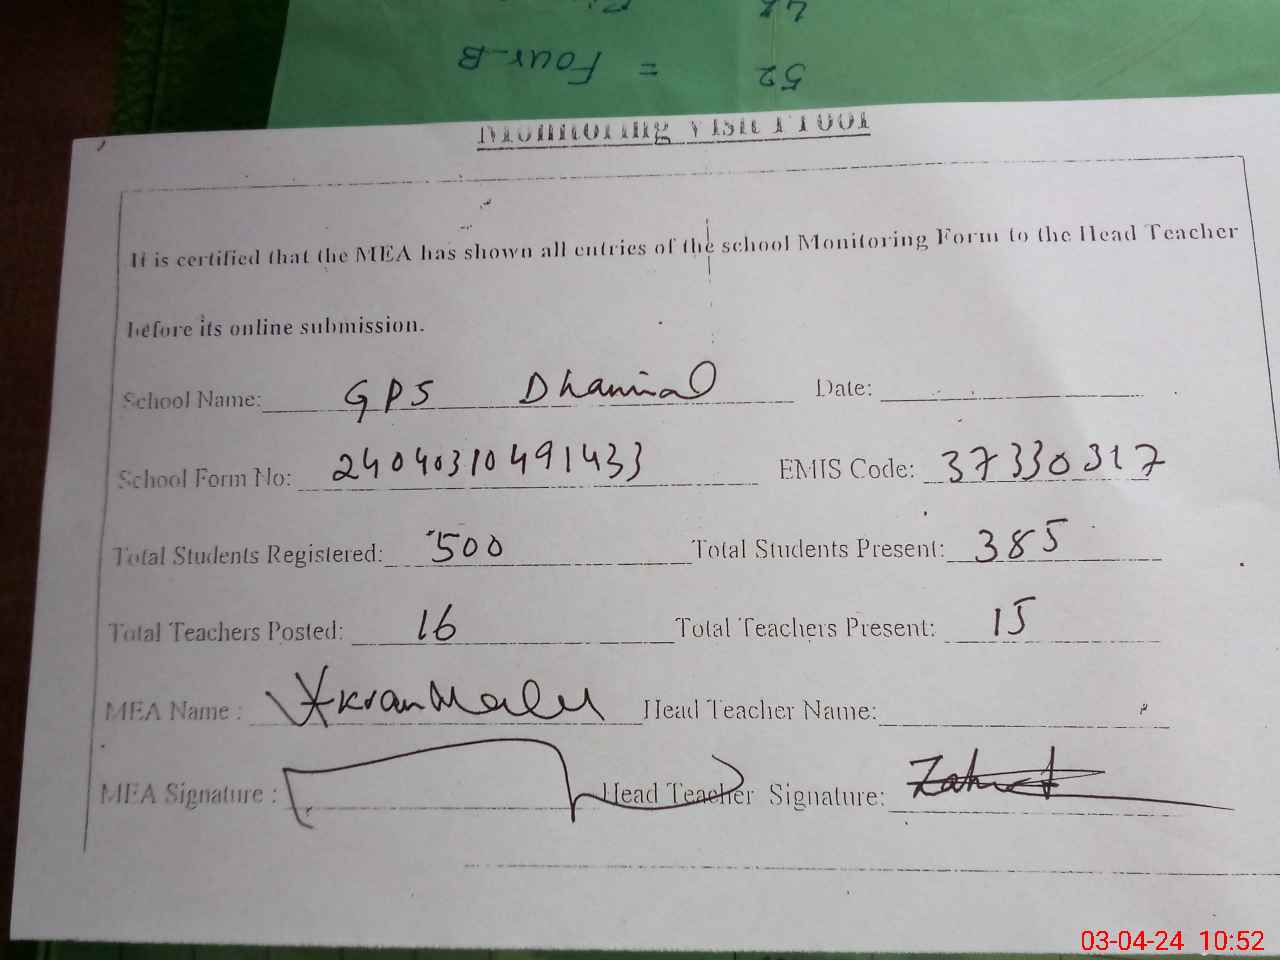 52 = Four-B
Monitoring Visit Proof
It is certified that the MEA has shown all entries of the school Monitoring Form to the Head Teacher
before its online submission.
School Name: GPS Dhamial Date:
School Form No: 24040310491433 EMIS Code: 37330317
Total Students Registered: 500 Total Students Present: 385
Total Teachers Posted: 16 Total Teachers Present: 15
MEA Name : Head Teacher Name:
MEA Signature : Head Teacher Signature:
03-04-24 10:52